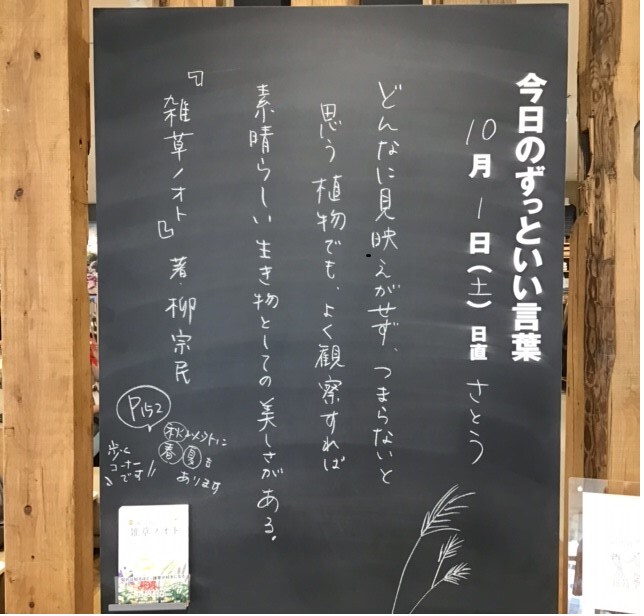 今日のずっといい言葉
10月1日(土) 日直 さとう
どんなに見映えがせず、つまらないと
思う植物でも、よく観察すれば
素晴らしい生き物としての美しさがある。
『雑草ノオト』 著・柳宗民
P152
秋メインに
春夏も
あります
歩く
コーナー
です!!
雑草ノオト